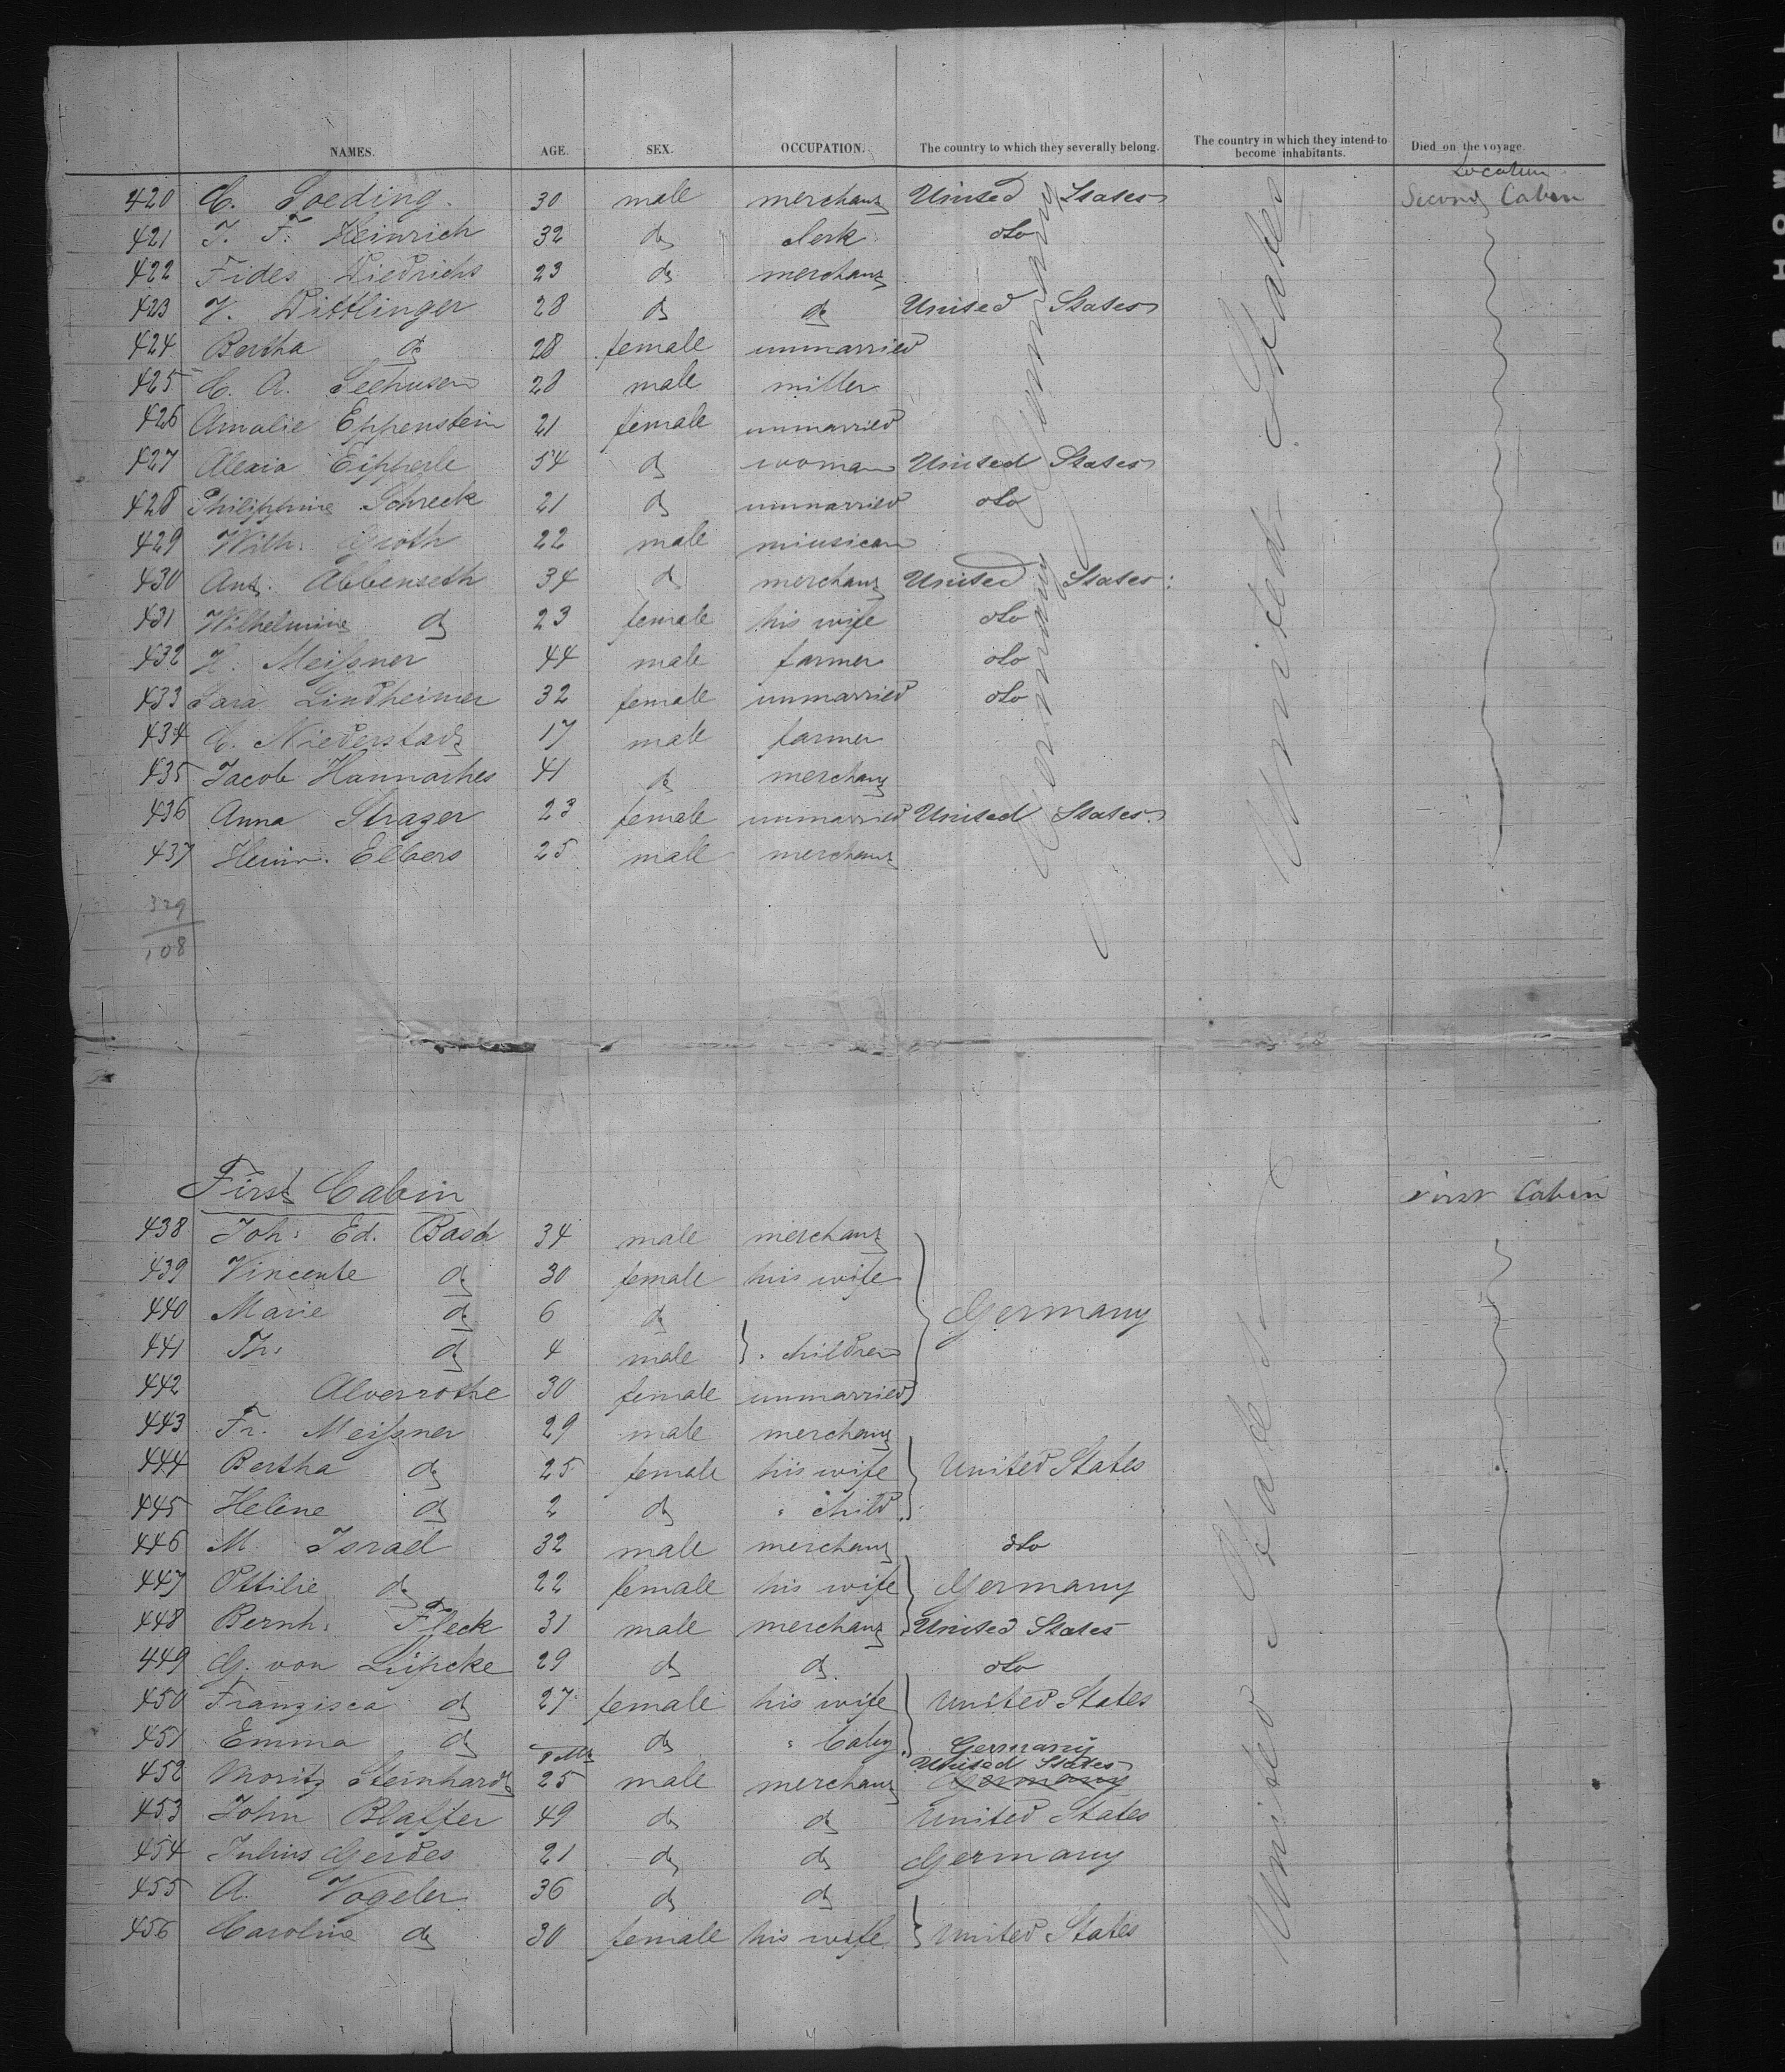 NAMES. AGE. SEX. OCCUPATION. The country to which they severally belong. The country in which they intend to become inhabitants. Died on the voyage.
Location
420 C. Soeding. 30 male merchant United States Second Cabin
421 J. F. Heinrich 32 do clerk dto
422 Fides Diedrichs 23 do merchant
423 V. Dittlinger 28 do do United States
424 Bertha do 28 female unmarried
425 C. A. Seehusen 28 male miller
426 Amalie Eppenstein 21 female unmarried
427 Alexia Eipperle 54 do woman United States
428 Philippine Schreck 21 do unmarried dto
429 Wilh. Groth 22 male miusican
430 Ant. Abbenseth 34 do merchant United States
431 Wilhelmine do 23 female his wife dto
432 H. Meißner 44 male farmer dto
433 Sara Lindheimer 32 female unmarried dto
434 C. Niederstadt 17 male farmer
435 Jacob Hannarkes 41 do merchant
436 Anna Strazer 23 female unmarried United States
437 Heinr. Elbers 25 male merchant
Germany Germany
United States
329
108
First Cabin First Cabin
438 Joh. Ed. Basch 34 male merchant
439 Vincente do 30 female his wife
440 Marie do 6 do Germany
441 Th. do 4 male " children
442 Alverrothe 30 female unmarried
443 Fr. Meißner 29 male merchant
444 Bertha do 25 female his wife United States
445 Helene do 2 do " child
446 M. Israel 32 male merchant dto
447 Ottilie do 22 female his wife Germany
448 Bernh. Fleck 31 male merchant United States
449 G. von Lüpcke 29 do do dto
450 Franzisca do 27 female his wife United States
451 Emma do do " baby Germany
United States
452 Moritz Steinhardt 25 male merchant Germany
453 John Blaffer 49 do do United States
454 Julius Gerdes 21 do do Germany
455 A. Vogeler 36 do do
456 Caroline do 30 female his wife United States
United States
BELL & HOWELL